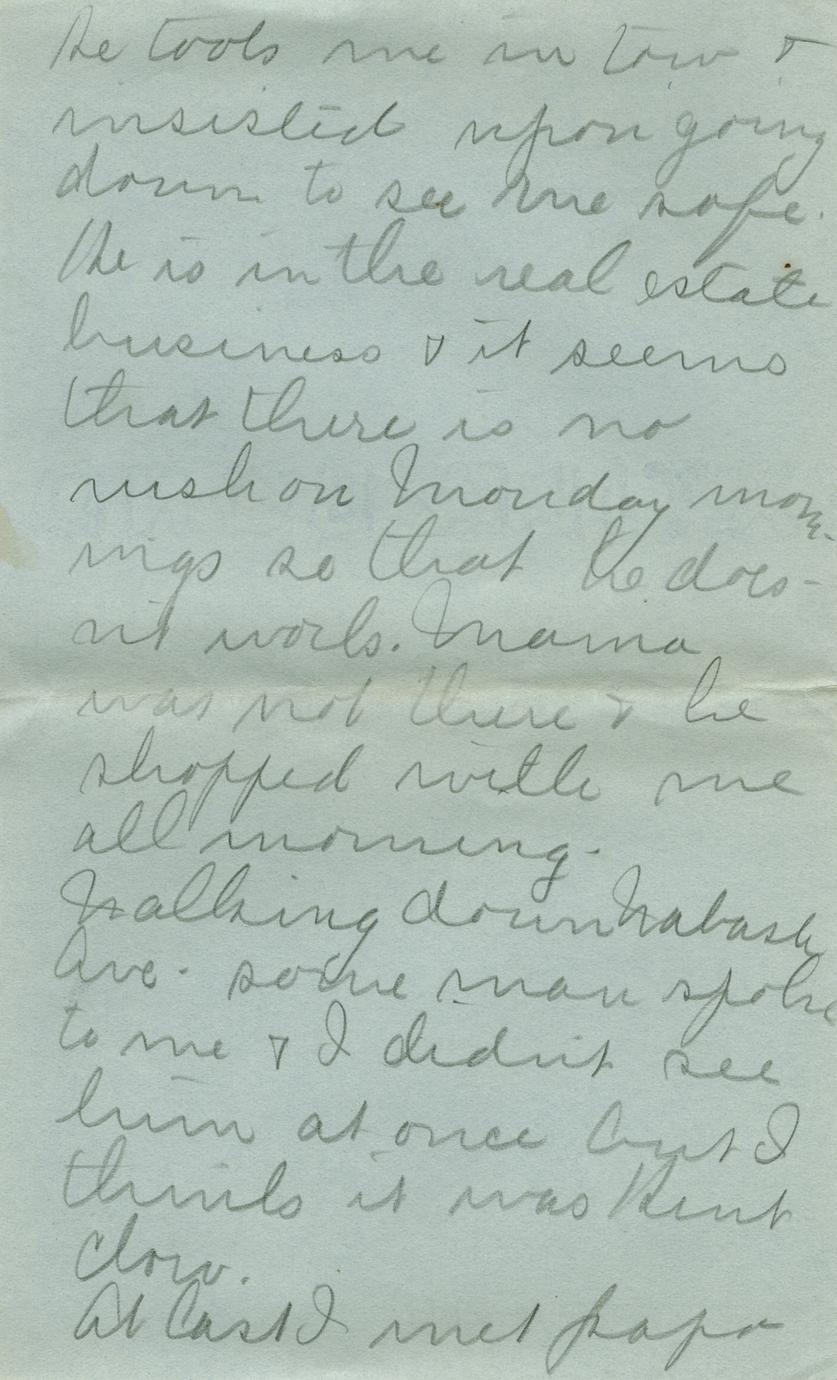 He took me in tow &
insisted upon going
down to see me safe.
He is in the real estate
business & it seems
that there is no
rush on Monday morn-
ings so that he does-
n't work. Mama
was not there & he
shopped with me
all morning.
Walking down Wabash
Ave. some man spoke
to me & I didn't see
him at once but I
think it was Kent
Clow.
At last I met papa